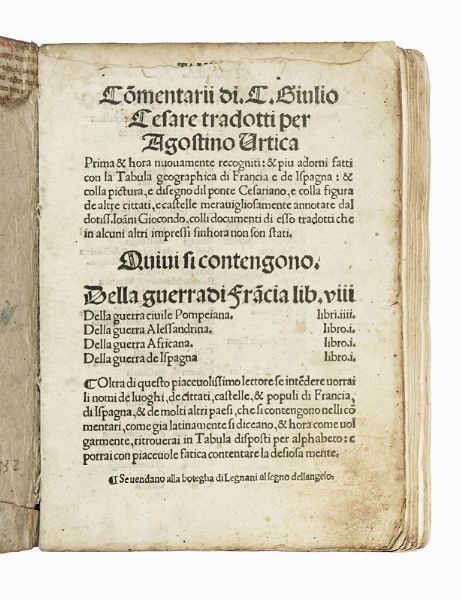 Cōmentarii di. C. Giulio
Cesare tradotti per
Agostino Urtica
Prima & hora nuouamente recogniti: & piu adorni fatti
con la Tabula geographica di Francia e de Ispagna: &
colla pictura, e disegno dil ponte Cesariano, e colla figura
de altre cittati, e castelle merauigliosamente annotate dal
dotiss. Ioāni Giocondo, colli documenti di esso tradotti che
in alcuni altri impressi sinhora non son stati.
Quiui si contengono.
Della guerra di Frācia lib. viii
Della guerra ciuile Pompeiana. libri.iiii.
Della guerra Alessandrina. libro.i.
Della guerra Africana. libro.i.
Della guerra de Ispagna libro.i.
¶Oltra di questo piaceuolissimo lettore se intēdere uorrai
li nomi de luoghi, de cittati, castelle, & populi di Francia,
di Ispagna, & de molti altri paesi, che si contengono nelli cō
mentari, come gia latinamente si diceano, & hora come uol
garmente, ritrouerai in Tabula disposti per alphabeto: e
porrai con piaceuole fatica contentare la desiosa mente.
¶ Se uendano alla botegha di Legnani al segno dellangelo.